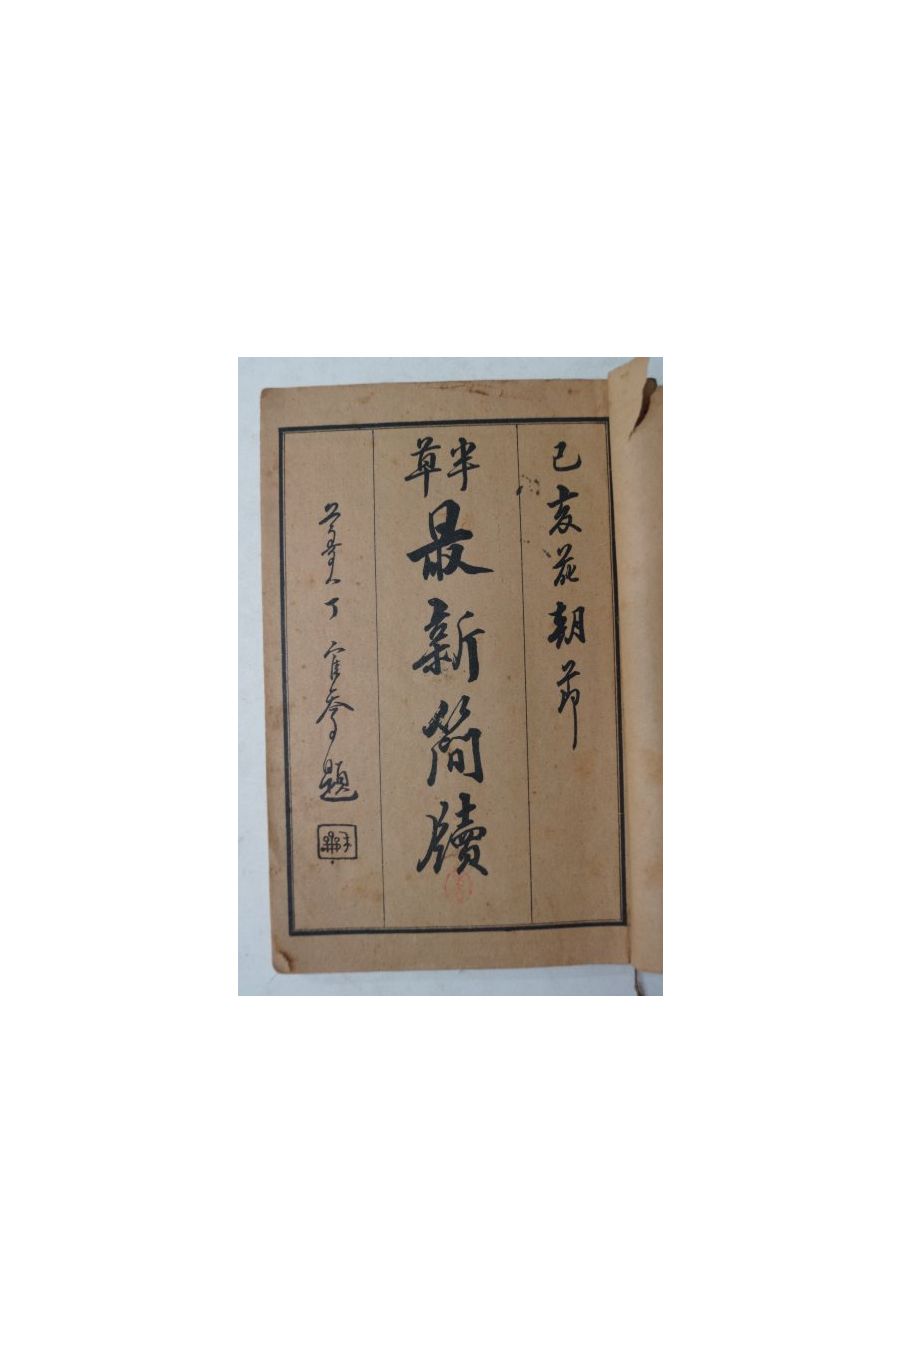 己亥花朝節
半草
最新簡牘
丁寉喬題